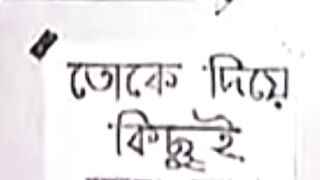 তোকে দিয়ে
কিছুই